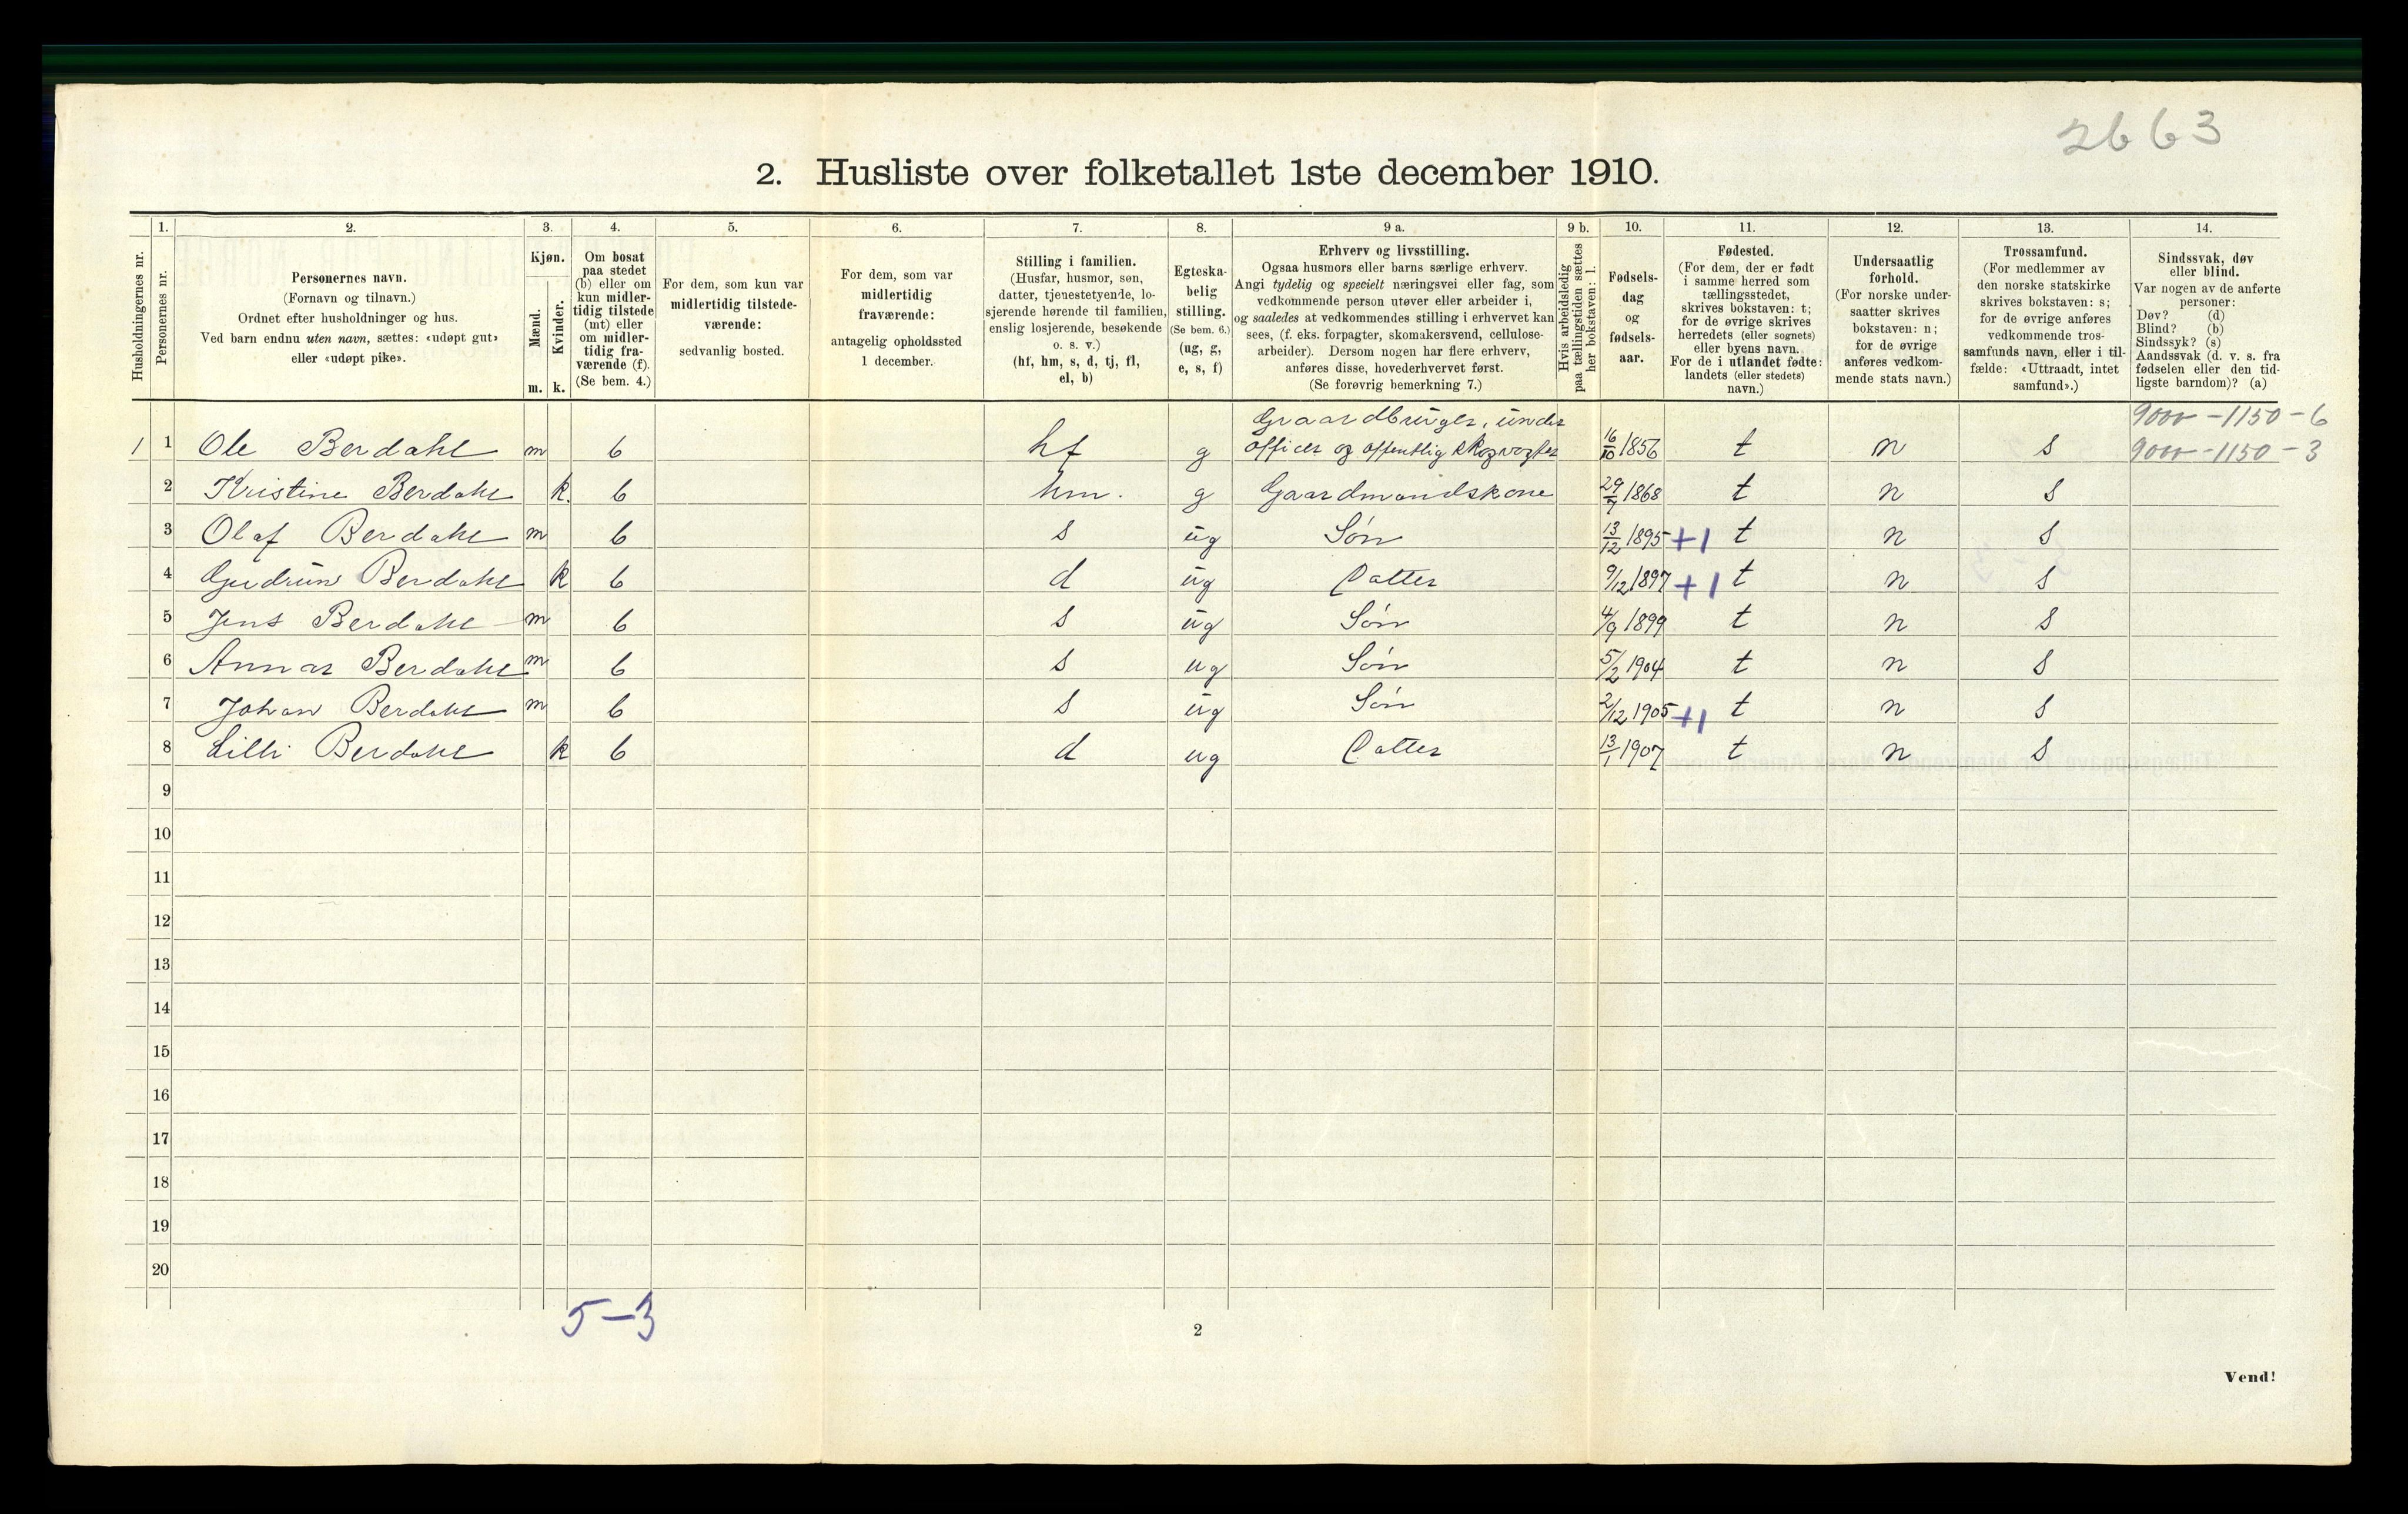 2663
2. Husliste over folketallet 1ste december 1910.
1. 2. 3. 4. 5. 6. 7. 8. 9 a. 9 b. 10. 11. 12. 13. 14.
Husholdningernes nr.
Personernes nr.
Personernes navn.
(Fornavn og tilnavn.)
Ordnet efter husholdninger og hus.
Ved barn endnu uten navn, sættes: «udøpt gut»
eller «udøpt pike».
Kjøn.
Mænd.
Kvinder.
m. k.
Om bosat
paa stedet
(b) eller om
kun midler-
tidig tilstede
(mt) eller
om midler-
tidig fra-
værende (f).
(Se bem. 4.)
For dem, som kun var
midlertidig tilstede-
værende:
sedvanlig bosted.
For dem, som var
midlertidig
fraværende:
antagelig opholdssted
1 december.
Stilling i familien.
(Husfar, husmor, søn,
datter, tjenestetyende, lo-
sjerende hørende til familien,
enslig losjerende, besøkende
o. s. v.)
(hf, hm, s, d, tj, fl,
el, b)
Egteska-
belig
stilling.
(Se bem. 6.)
(ug, g,
e, s, f)
Erhverv og livsstilling.
Ogsaa husmors eller barns særlige erhverv.
Angi tydelig og specielt næringsvei eller fag, som
vedkommende person utøver eller arbeider i,
og saaledes at vedkommendes stilling i erhvervet kan
sees, (f. eks. forpagter, skomakersvend, cellulose-
arbeider). Dersom nogen har flere erhverv,
anføres disse, hovederhvervet først.
(Se forøvrig bemerkning 7.)
Hvis arbeidsledig
paa tællingstiden sættes
her bokstaven: l.
Fødsels-
dag
og
fødsels-
aar.
Fødested.
(For dem, der er født
i samme herred som
tællingsstedet,
skrives bokstaven: t;
for de øvrige skrives
herredets (eller sognets)
eller byens navn.
For de i utlandet fødte:
landets (eller stedets)
navn.)
Undersaatlig
forhold.
(For norske under-
saatter skrives
bokstaven: n;
for de øvrige
anføres vedkom-
mende stats navn.)
Trossamfund.
(For medlemmer av
den norske statskirke
skrives bokstaven: s;
for de øvrige anføres
vedkommende tros-
samfunds navn, eller i til-
fælde: «Uttraadt, intet
samfund».)
Sindssvak, døv
eller blind.
Var nogen av de anførte
personer:
Døv? (d)
Blind? (b)
Sindssyk? (s)
Aandssvak (d. v. s. fra
fødselen eller den tid-
ligste barndom)? (a)
Graardbruger, under 9000-1150-6
1 1 Ole Berdahl m b hf g officer og offentlig skogvogter 16/10 1856 t n s 9000-1150-3
2 Kristine Berdahl k. b hm. g Gaardmandskone 29/7 1868 t n s
3 Olaf Berdahl m b s ug Søn 13/12 1895 +1 t n s
4 Gudrun Berdahl k b d ug Datter 9/12 1897 +1 t n s
5 Jens Berdahl m b s ug Søn 4/9 1899 t n s
6 Annar Berdahl m b s ug Søn 5/2 1904 t n s
7 Johan Berdahl m b s ug Søn 2/12 1905 +1 t n s
8 Lilli Berdahl k b d ug Datter 13/1 1907 t n s
9
10
11
12
13
14
15
16
17
18
19
20
5-3
2
Vend!